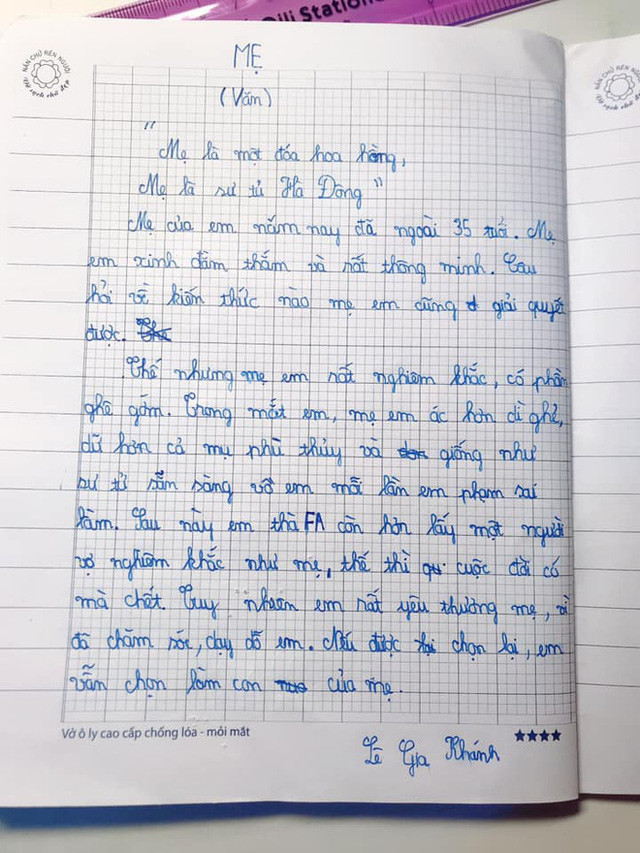 Qili Station
NẮN CHỮ RÈN NGƯỜI
MẸ
(Văn)
"
Mẹ là một đóa hoa hồng,
Mẹ là sư tử Hà Đông"
Mẹ của em năm nay đã ngoài 35 tuổi. Mẹ
em xinh đằm thắm và rất thông minh. Câu
hỏi về kiến thức nào mẹ em cũng giải quyết
được.
Thế nhưng mẹ em rất nghiêm khắc, có phần
ghê gớm. Trong mắt em, mẹ em ác hơn dì ghẻ,
dữ hơn cả mụ phù thủy và giống như
sư tử sẵn sàng vồ em mỗi lần em phạm sai
lầm. Sau này em thà FA còn hơn lấy một người
vợ nghiêm khắc như mẹ, thế thì cuộc đời có
mà chết. Tuy nhiên em rất yêu thương mẹ, vì
đã chăm sóc, dạy dỗ em. Nếu được chọn lại, em
vẫn chọn làm con của mẹ.
Vở ô ly cao cấp chống lóa - mỏi mắt
Lê Gia Khánh